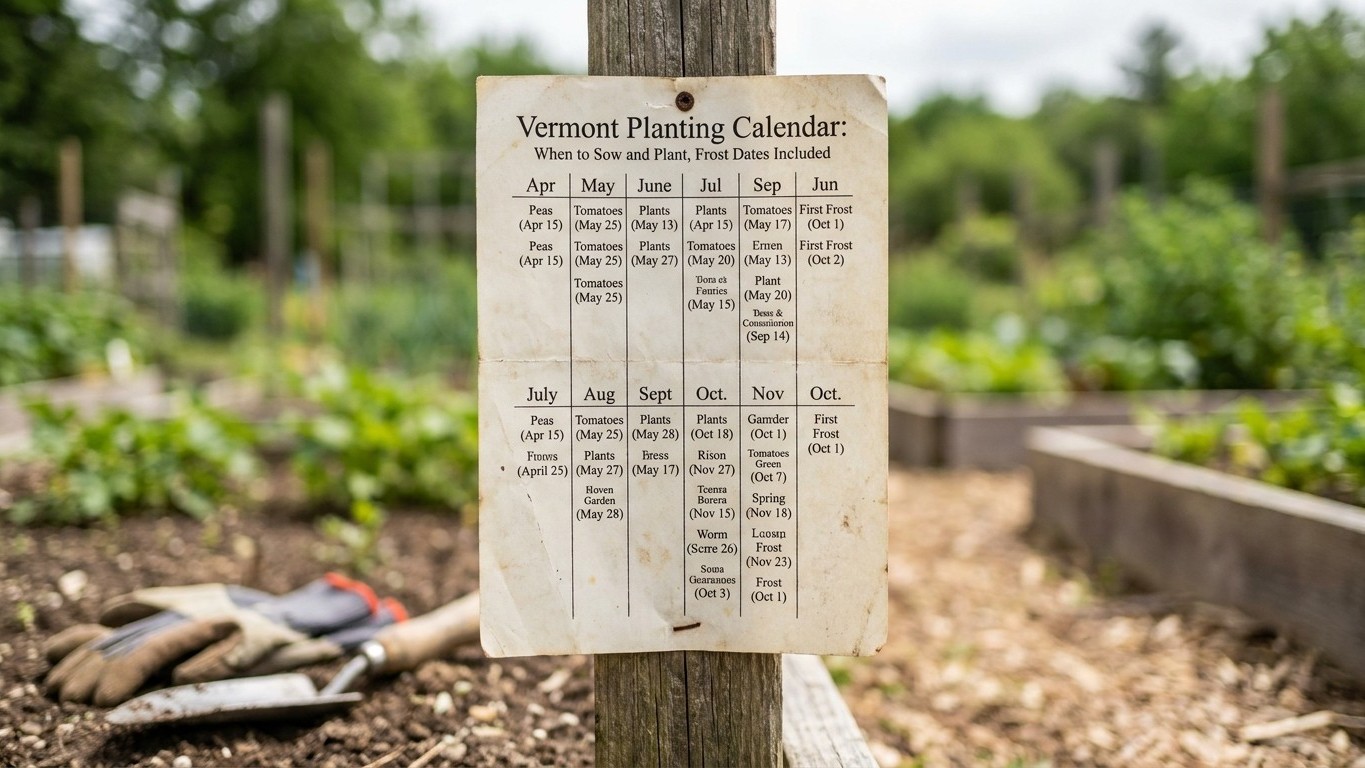 Vermont Planting Calendar:
When to Sow and Plant, Frost Dates Included
Apr May June Jul Sep Jun
Peas Tomatoes Plants Plants Tomatoes First Frost
(Apr 15) (May 25) (May 13) (Apr 15) (May 17) (Oct 1)
Peas Tomatoes Plants Tomatoes First Frost
(Apr 15) (May 25) (May 27) (May 20) (May 13) (Oct 2)
Tomatoes Plant
(May 25) (May 15) (May 20)
(Sep 14)
July Aug Sept Oct. Nov Oct.
Peas Tomatoes Plants Plants First
(Apr 15) (May 25) (May 28) (Oct 18) (Oct 1) Frost
Plants Rison Tomatoes (Oct 1)
(April 25) (May 27) (May 17) (Nov 27) Green
(Oct 7)
Garden Spring
(May 28) (Nov 15) (Nov 18)
Worm
(Scrre 26) Frost
(Nov 23)
Frost
(Oet 3) (Oct 1)